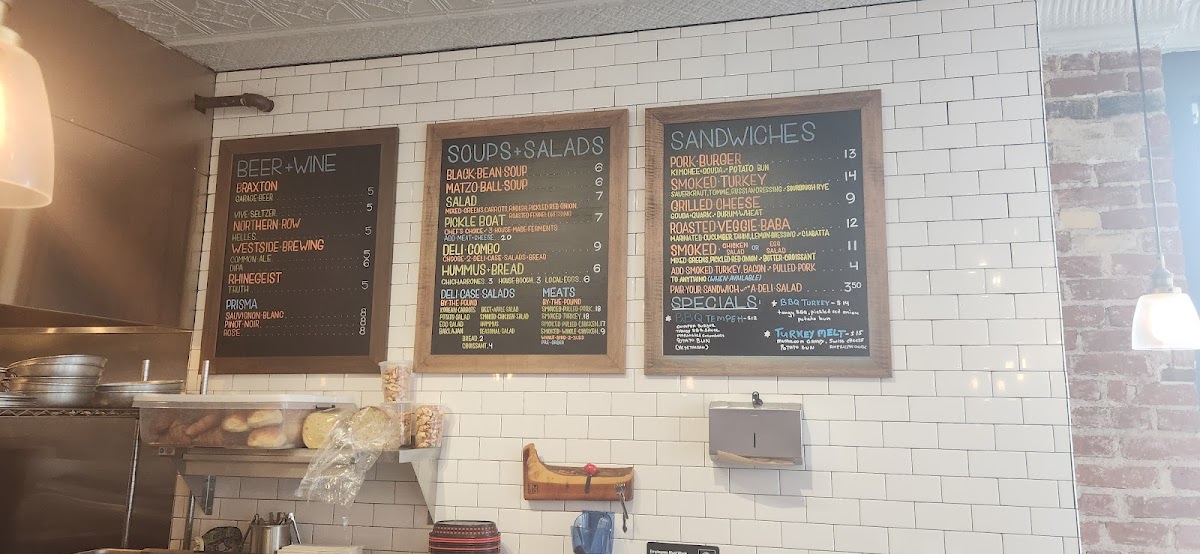 BEER+WINE
BRAXTON 5
GARAGE BEER
VIVE SELTZER 5
NORTHERN ROW
HELLES 5
WESTSIDE BREWING
COMMON ALE 5
DIPA 6
RHINEGEIST
TRUTH 5
PRISMA
SAUVIGNON BLANC 8
PINOT NOIR 8
ROSE 8
SOUPS+SALADS
BLACK BEAN SOUP 6
MATZO BALL SOUP 6
SALAD 7
MIXED GREENS, CARROTT, RADISH, PICKLED RED ONION,
ROASTED FENNEL DRESSING
PICKLE BOAT 7
CHEF'S CHOICE / 3 HOUSE MADE FERMENTS
ADD MEAT+CHEESE 2.0
DELI COMBO 9
CHOOSE 2 DELI CASE SALADS+BREAD
HUMMUS+BREAD 6
CHICHARRONES..3 HOUSE BOUGH..3 LOCAL EGGS..6
DELI CASE SALADS
BY THE POUND
KOREAN CARROTS BEET APPLE SALAD
POTATO SALAD SMOKED CHICKEN SALAD
EGG SALAD HUMMUS
SEASONAL SALAD
BREAD 2
CROISSANT 4
MEATS
BY THE POUND
SMOKED PULLED PORK 18
SMOKED TURKEY 18
SMOKED PULLED CHICKEN 17
SMOKED WHOLE CHICKEN
PRE-ORDER
SANDWICHES
PORK BURGER 13
KIMCHEE GOUDA POTATO BUN
SMOKED TURKEY 14
SAUERKRAUT, TOMME, RUSSIAN DRESSING SOURDOUGH RYE
GRILLED CHEESE 9
GOUDA+QUARK DURUM WHEAT
ROASTED VEGGIE BABA 12
MARINATED CUCUMBER, TAHINI, LEMON DRESSING CIABATTA
SMOKED CHICKEN SALAD OR EGG SALAD 11
MIXED GREENS, PICKLED RED ONION BUTTER CROISSANT
ADD SMOKED TURKEY, BACON PULLED PORK 4
TO ANYTHING (WHEN AVAILABLE)
PAIR YOUR SANDWICH W A DELI SALAD 3.50
SPECIALS:
* BBQ TEMPEH - $12
TANGY BBQ SAUCE
POTATO BUN
(VEGETARIAN)
* BBQ TURKEY - $14
tangy BBQ, pickled red onion
potato bun
* TURKEY MELT - $15
SWISS CHEESE
POTATO BUN